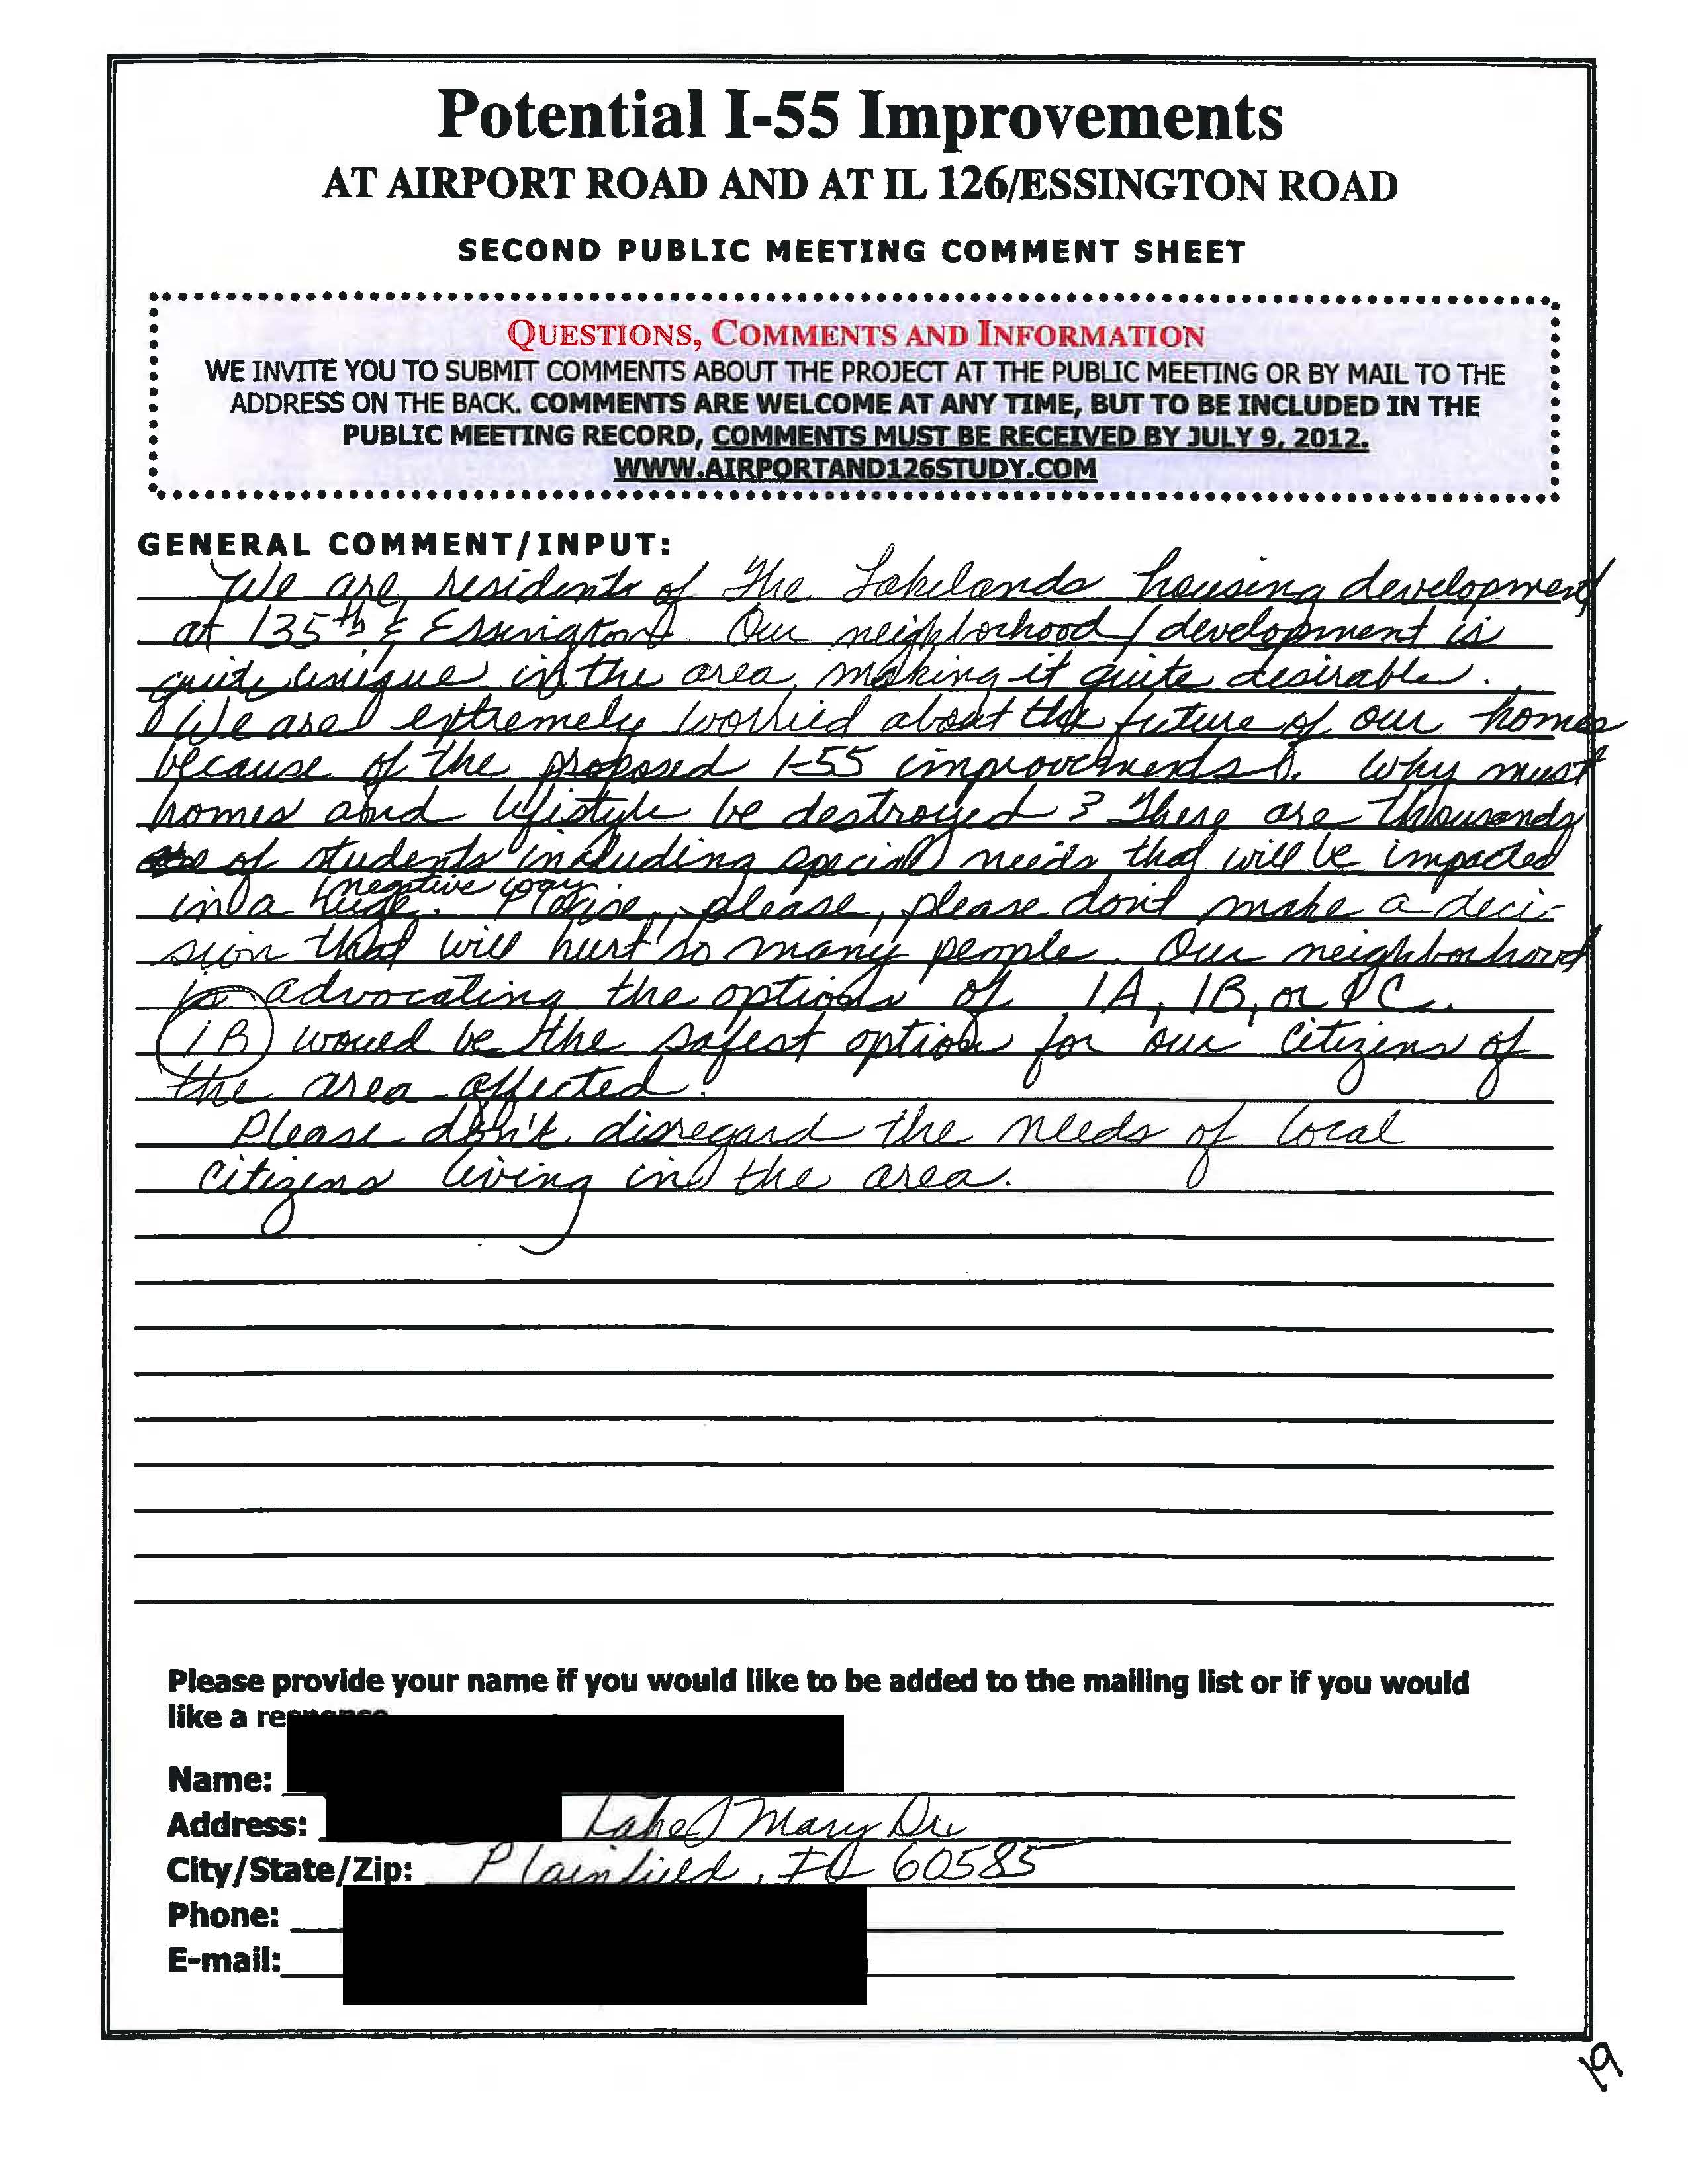 Potential I-55 Improvements
AT AIRPORT ROAD AND AT IL 126/ESSINGTON ROAD
SECOND PUBLIC MEETING COMMENT SHEET
QUESTIONS, COMMENTS AND INFORMATION
WE INVITE YOU TO SUBMIT COMMENTS ABOUT THE PROJECT AT THE PUBLIC MEETING OR BY MAIL TO THE
ADDRESS ON THE BACK. COMMENTS ARE WELCOME AT ANY TIME, BUT TO BE INCLUDED IN THE
PUBLIC MEETING RECORD, COMMENTS MUST BE RECEIVED BY JULY 9, 2012.
WWW.AIRPORTAND126STUDY.COM
GENERAL COMMENT/INPUT:
We are residents of The Lakelands housing development
at 135th & Essington. Our neighborhood/development is
quite unique in the area, making it quite desirable.
We are extremely worried about the future of our homes
because of the proposed I-55 improvements. Why must
homes and lifestyle be destroyed? There are thousands
of students including special needs that will be impacted
in a huge negative way. Please, please, please don't make a deci-
sion that will hurt so many people. Our neighborhood
is advocating the options of 1A, 1B, or 1C.
1B would be the safest option for our citizens of
the area affected.
Please don't disregard the needs of local
citizens living in the area.
Please provide your name if you would like to be added to the mailing list or if you would
like a response.
Name:
Address: Lake Mary Dr
City/State/Zip: Plainfield, IL 60585
Phone:
E-mail:
19